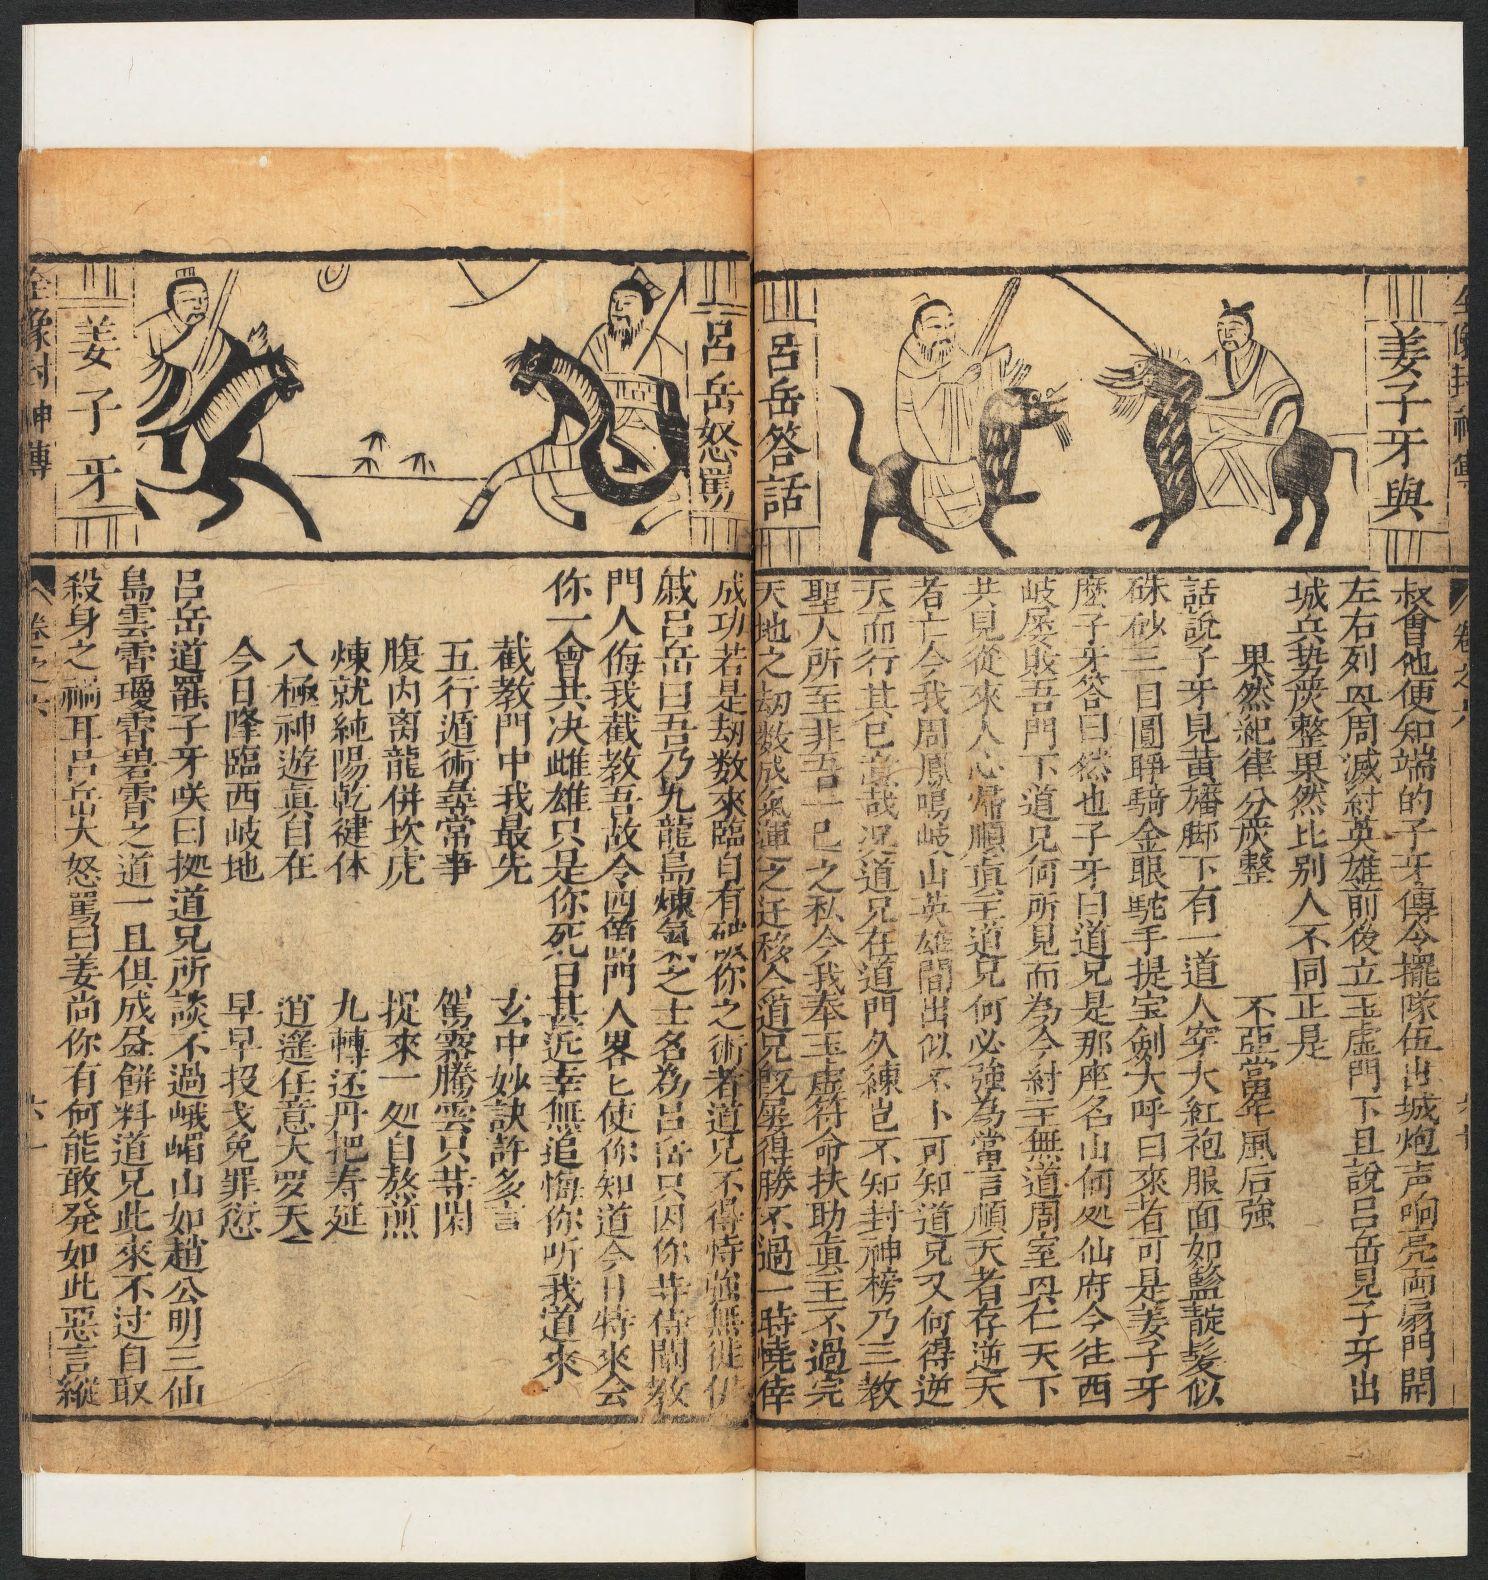 姜子牙與
呂岳答話
叔會他便知端的子牙傳令擺隊伍出城炮声响亮両扇門開
左右列㒷周滅紂英雄前後立玉虛門下且說呂岳見子牙出
城兵势嚴整果然比别人不同正是
果然紀律分嚴整　不亞當年風后強
話說子牙見黃旛脚下有一道人穿大紅袍服面如籃靛髮似
硃砂三目圓睜騎金眼駝手提宝劍大呼曰來者可是姜子牙
麼子牙答曰然也子牙曰道兄是那座名山何処仙府今往西
岐屡敗吾門下道兄何所見而為今紂王無道周室㒷仁天下
共見從來人心歸順真主道兄何必強為當言順天者存逆天
者亡今我周鳳鳴岐山英雄間出似不卜可知道兄又何得逆
天而行其已意哉况道兄在道門久練岂不知封神榜乃三教
聖人所至非吾一己之私今我奉玉虛符命扶助真王不過完
天地之刼数成氣運之迁移今道兄既屡得勝不過一時僥倖
呂岳怒罵
姜子牙
成功若是刼数來臨自有破你之術者道兄不得恃強無徒伊
戚呂岳曰吾乃九龍島煉氣之士名為呂岳只因你等侍闡教
門人侮我截教吾故令四個門人畧匕使你知道今日特來会
你一會共决雌雄只是你死日甚近幸無追悔你听我道來
截教門中我最先　玄中妙訣許多言
五行遁術尋常事　駕雾騰雲只等閑
腹内离龍併坎虎　捉來一処自熬煎
煉就純陽乾徤体　九轉还丹把寿延
八極神遊真自在　逍遥任意大罗天
今日降臨西岐地　早早投戈免罪愆
呂岳道罷子牙咲曰拠道兄所談不過峨嵋山如趙公明三仙
島雲霄瓊霄碧霄之道一旦俱成畚餅料道兄此來不过自取
殺身之禍耳呂岳大怒罵曰姜尚你有何能敢発如此惡言縱
全像封神傳
卷之六
六十一